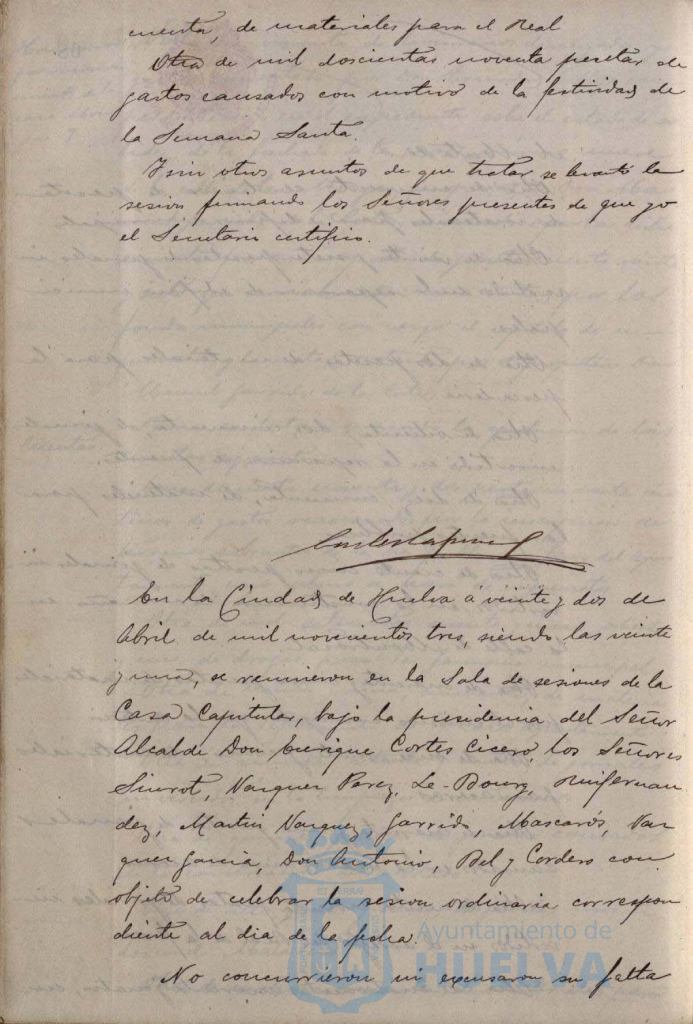 cuenta, de materiales para el Real
Otra de mil doscientas noventa pesetas de
gastos causados con motivo de la festividad de
la Semana Santa.
Y sin otros asuntos de que tratar se levantó la
sesion firmando los Señores presentes de que yo
el Secretario certifico.
En la Ciudad de Huelva á veinte y dos de
Abril de mil novecientos tres, siendo las veinte
y una, se reunieron en la Sala de sesiones de la
Casa Capitular, bajo la presidencia del Señor
Alcalde Don Enrique Cortes Cicero, los Señores
Siurot, Vazquez Perez, Le-Bourg, Ruifernan
dez, Martin Vazquez, Garrido, Mascarós, Vaz
quez Garcia, Don Antonio, Bel y Cordero con
objeto de celebrar la sesion ordinaria correspon
diente al dia de la fecha.
No concurrieron ni excusaron su falta
Ayuntamiento de
HUELVA